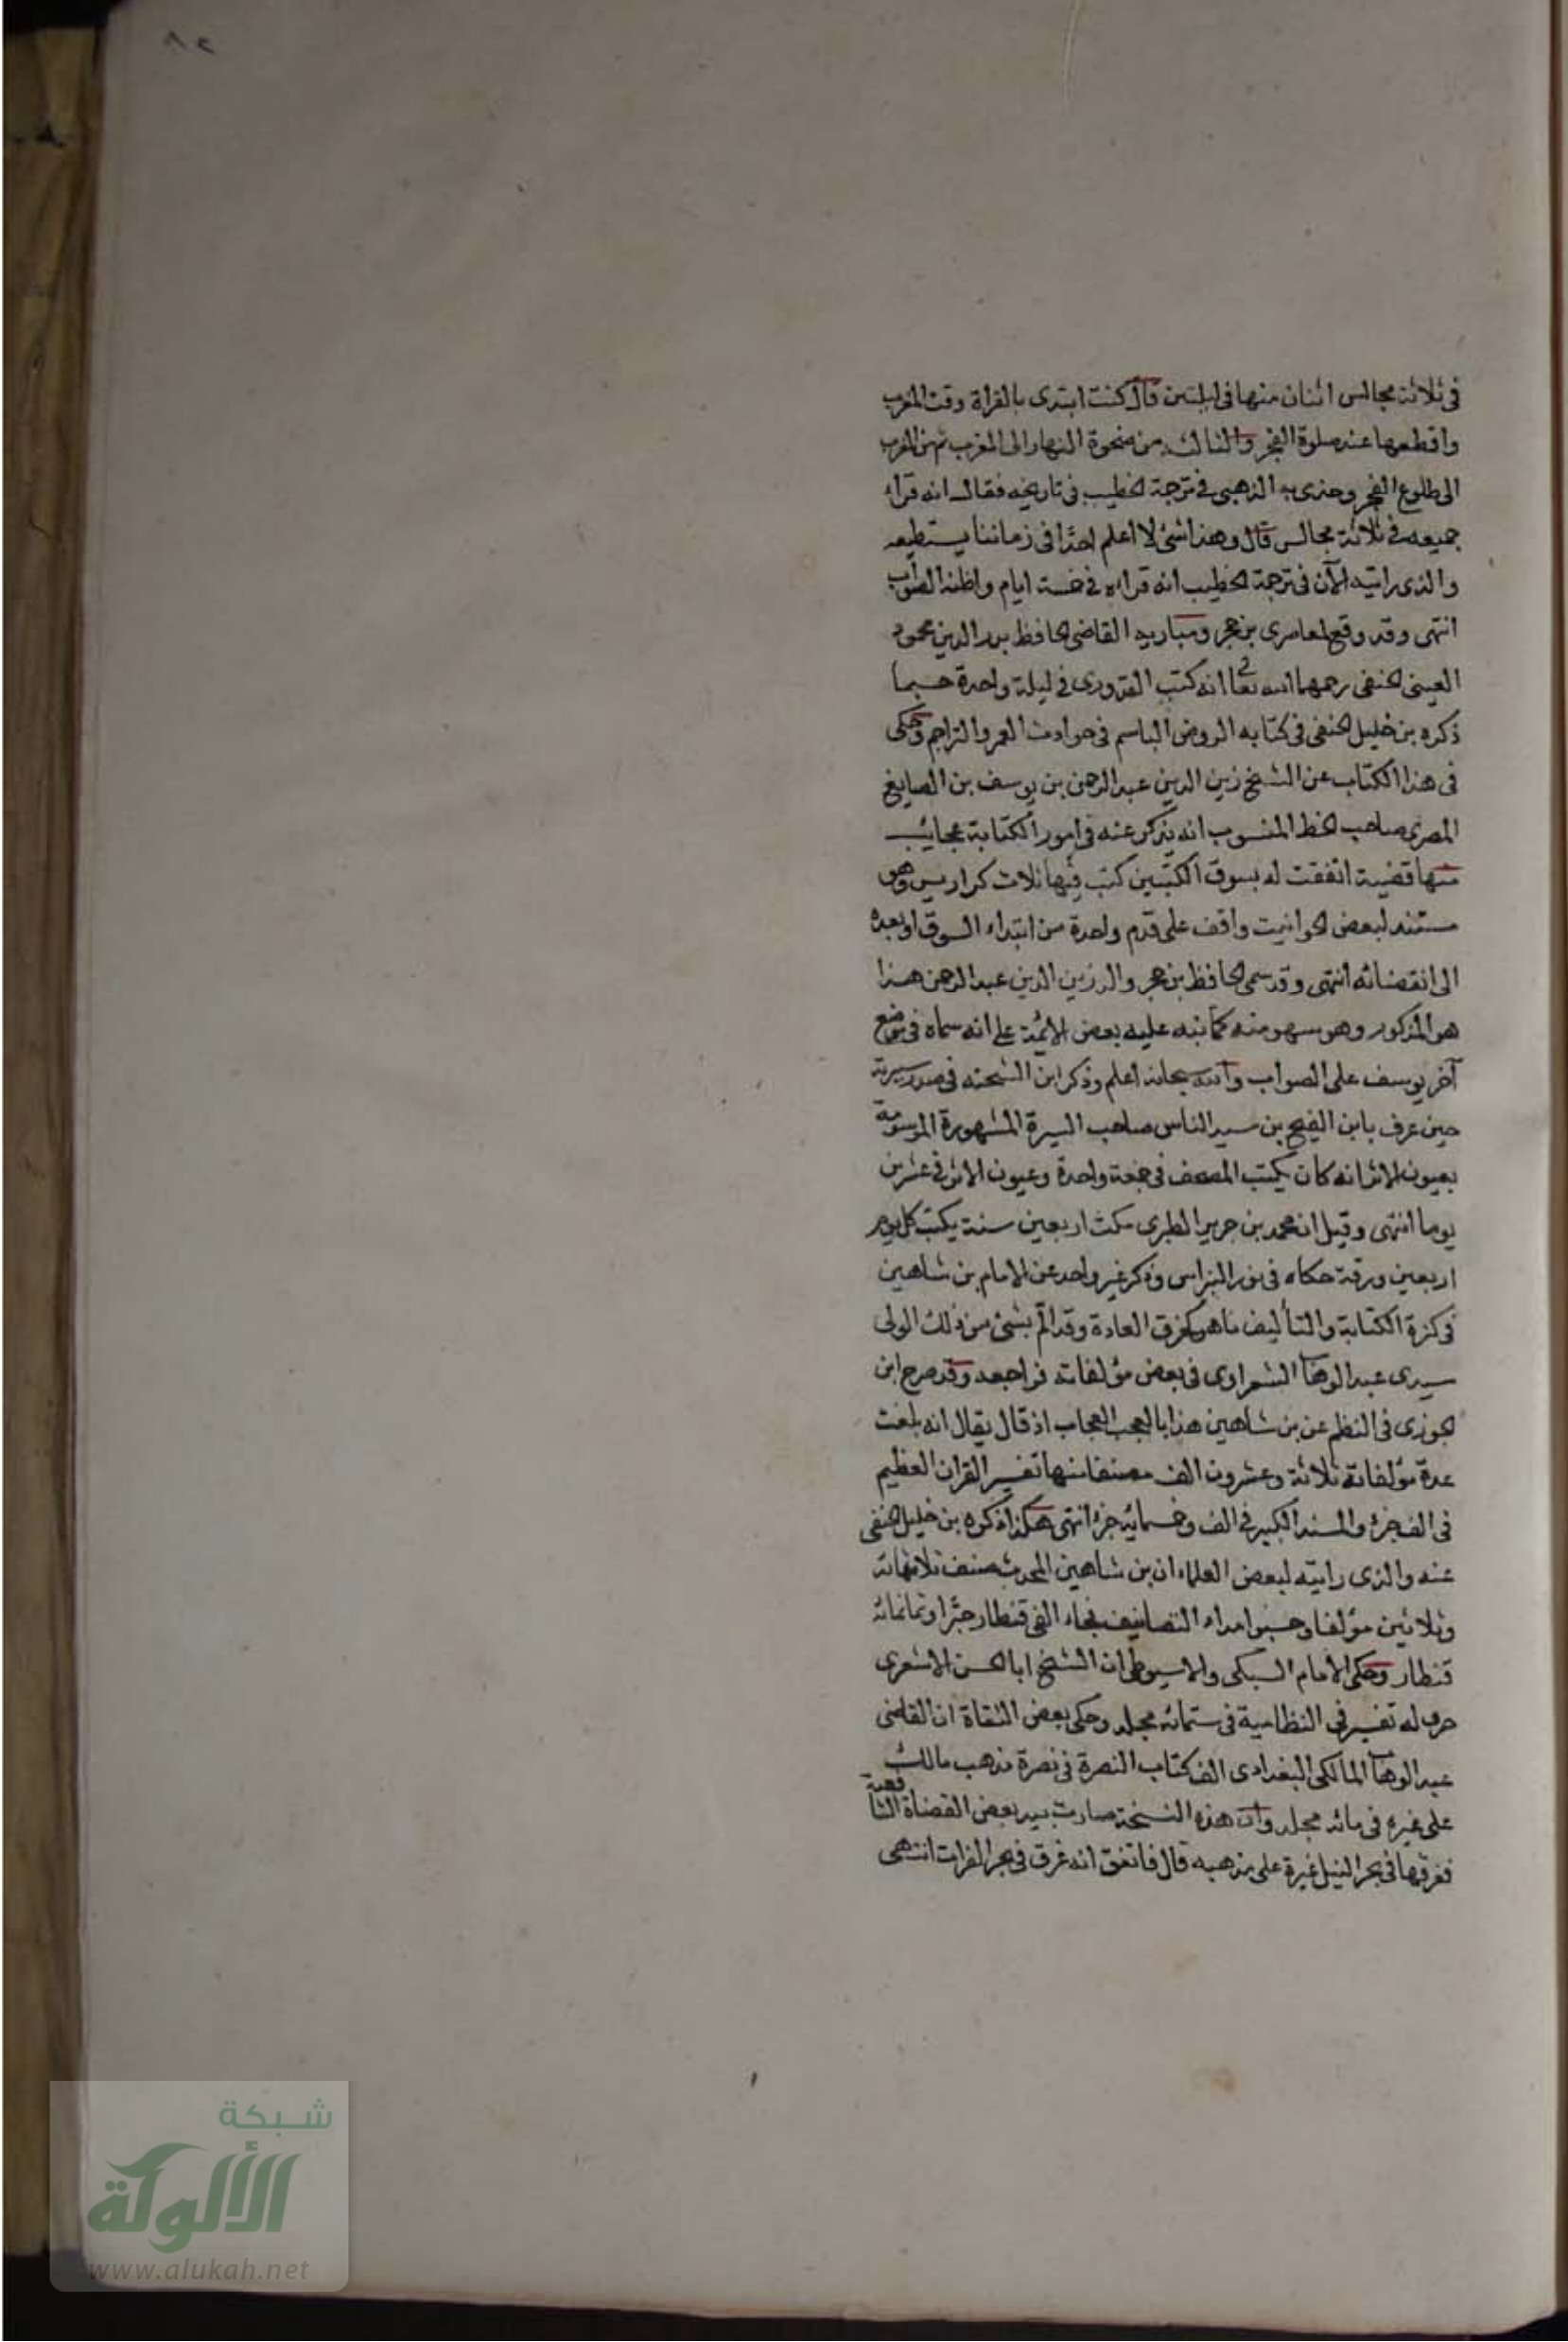 ٨٢
فى ثلاثة مجالس اثنان منها فى ليلتين قال كنت ابتدى بالقراة وقت المغرب
واقطعها عند صلوة الفجر والثالث من ضحوة النهار الى المغرب ثم من المغرب
الى طلوع الفجر وحذى به الذهبى فى ترجمة الخطيب فى تاريخه فقال انه قراء
جميعه فى ثلاثة مجالس قال وهذا شئ لا اعلم احدًا فى زماننا يستطيعه
والذى رايته الآن فى ترجمة الخطيب انه قراءه فى خمسة ايام واظنه الصواب
انتهى وقد وقع لمعاصرى بن حجر ومباريه القاضى الحافظ بدر الدين محمود
العينى الحنفى رحمهما الله تعا انه كتب القدورى فى ليلة واحدة حسبما
ذكره بن خليل الحنفى فى كتابه الروض الباسم فى حوادث العمر والتراجم وحكى
فى هذا الكتاب عن الشيخ زين الدين عبد الرحمن بن يوسف بن الصايغ
المصرى صاحب الخط المنسوب انه يذكر عنه فى امور الكتابة عجائب
منها قضية اتفقت له بسوق الكتبين كتب فيها ثلاث كراريس وهو
مستند لبعض الحوانيت واقف على قدم واحدة من ابتداء السوق او بعده
الى انقضائه انتهى وقد سمى الحافظ بن حجر والد زين الدين عبد الرحمن هذا
هو المذكور وهو سهو منه كما نبه عليه بعض الائمة على انه سماه فى موضع
آخر يوسف على الصواب والله سبحانه اعلم وذكر ابن الشحنه فى صدر سيرته
حين عرف بابن الفتح بن سيد الناس صاحب السيرة المشهورة الموسومة
بعيون الاثر انه كان يكتب المصحف فى جمعة واحدة وعيون الاثر فى عشرين
يوما انتهى وقيل ان محمد بن جرير الطبرى مكث اربعين سنة يكتب كل يوم
اربعين ورقة حكاه فى نور النبراس وذكر غير واحد عن الامام بن شاهين
فى كثرة الكتابة والتأليف ما هو كخرق العادة وقد الّم بشئ من ذلك الولى
سيدى عبد الوهاب الشعراوى فى بعض مؤلفاته فراجعه وقد صرح ابن
الجوزى فى النظم عن بن شاهين هذا بالعجب العجاب اذ قال يقال انه بلغت
عدة مؤلفاته ثلاثة وعشرون الف مصنفا منها تفسير القران العظيم
فى الف جزء والمسند الكبير فى الف وخمسمائه جزء انتهى هكذا ذكره بن خليل الحنفى
عنه والذى رايته لبعض العلماء ان بن شاهين المحدث صنف ثلاثمائة
وثلاثين مؤلفا وحسبوا مداد التصانيف فجاء الفى قنطار حبرًا وثمانمائه
قنطار وحكى الامام السبكى والاسيوطى ان الشيخ ابا الحسن الاشعرى
له تفسير فى النظامية فى ستمائه مجلد وحكى بعض الثقاة ان القاضى
عبد الوهاب المالكى البغدادى الف كتاب النصرة فى نصرة مذهب مالك
على غيره فى مائه مجلد وان هذه النسخة صارت بيد بعض القضاة الشافعية
فغرقها فى بحر النيل غيرة على مذهبه قال فاتفق انه غرق فى بحر الفرات انتهى
شبكة
الألوكة
www.alukah.net